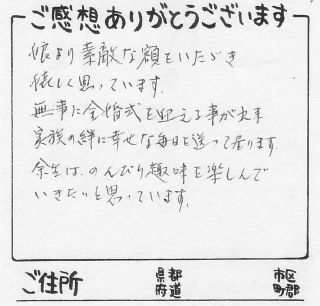 ご感想ありがとうございます
娘より素敵な額をいただき
嬉しく思っています。
無事に金婚式を迎える事が出来
家族の絆に幸せな毎日を送って居ります。
余生は、のんびり趣味を楽しんで
いきたいと思っています。
ご住所
県都 市区
府道 町郡